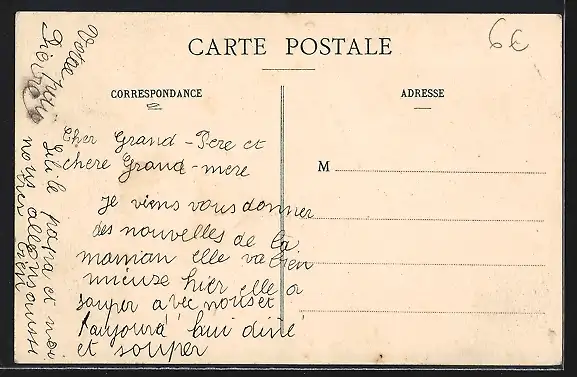 CARTE POSTALE
6€
CORRESPONDANCE
ADRESSE
M
Cher Grand-Pere et
chere Grand-mere
Je viens vous donner
des nouvelles de la
maman elle va bien
mieuse hier elle a
souper avec nous et
aujourd'hui diné
et souper
papa et moi
nous allons aussi
bien
Votre